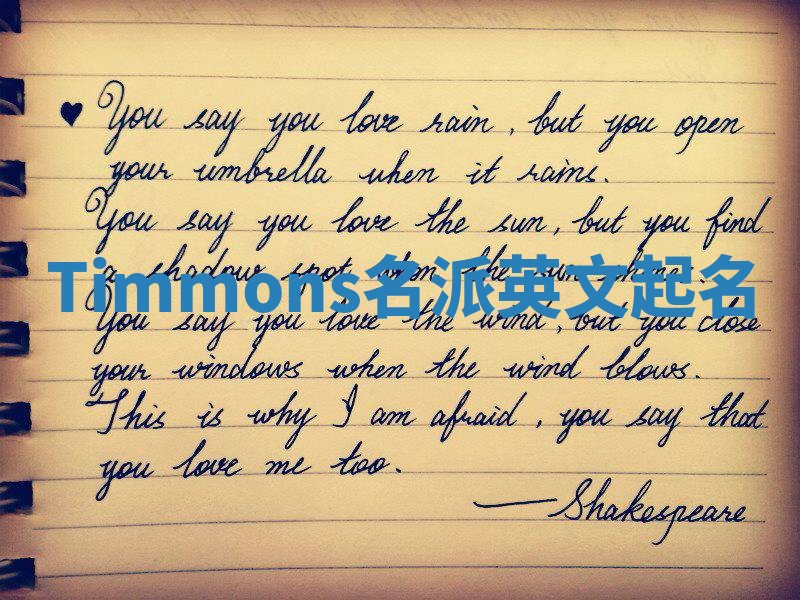 ♥ You say you love rain, but you open
your umbrella when it rains.
You say you love the sun, but you find
a shadow spot when the sun shines.
Timmons名派英文起名
You say you love the wind, but you close
your windows when the wind blows.
This is why I am afraid, you say that
you love me too.
—Shakespeare